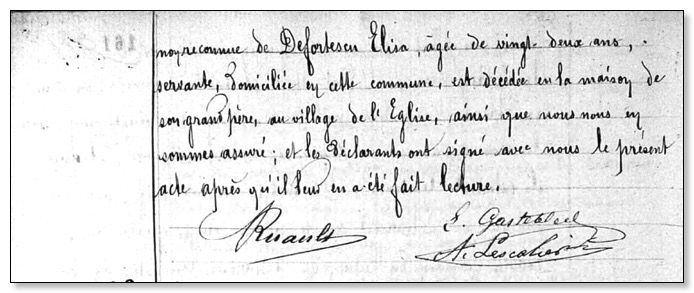 non reconnue de Defortescu Elisa, âgée de vingt-deux ans,
servante, domiciliée en cette commune, est décédée en la maison de
son grand père, au village de l'Eglise, ainsi que nous nous en
sommes assuré; et les déclarants ont signé avec nous le présent
acte après qu'il leur en a été fait lecture.
Ruault